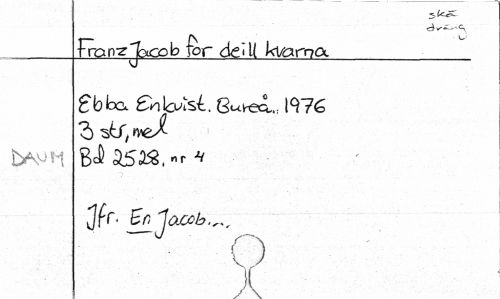 skä
dräng
Franz Jacob för deill kvarna
Ebba Enkvist. Bureå. 1976
3 str, mel
DAUM Bd 2528, nr 4
Jfr. En Jacob...